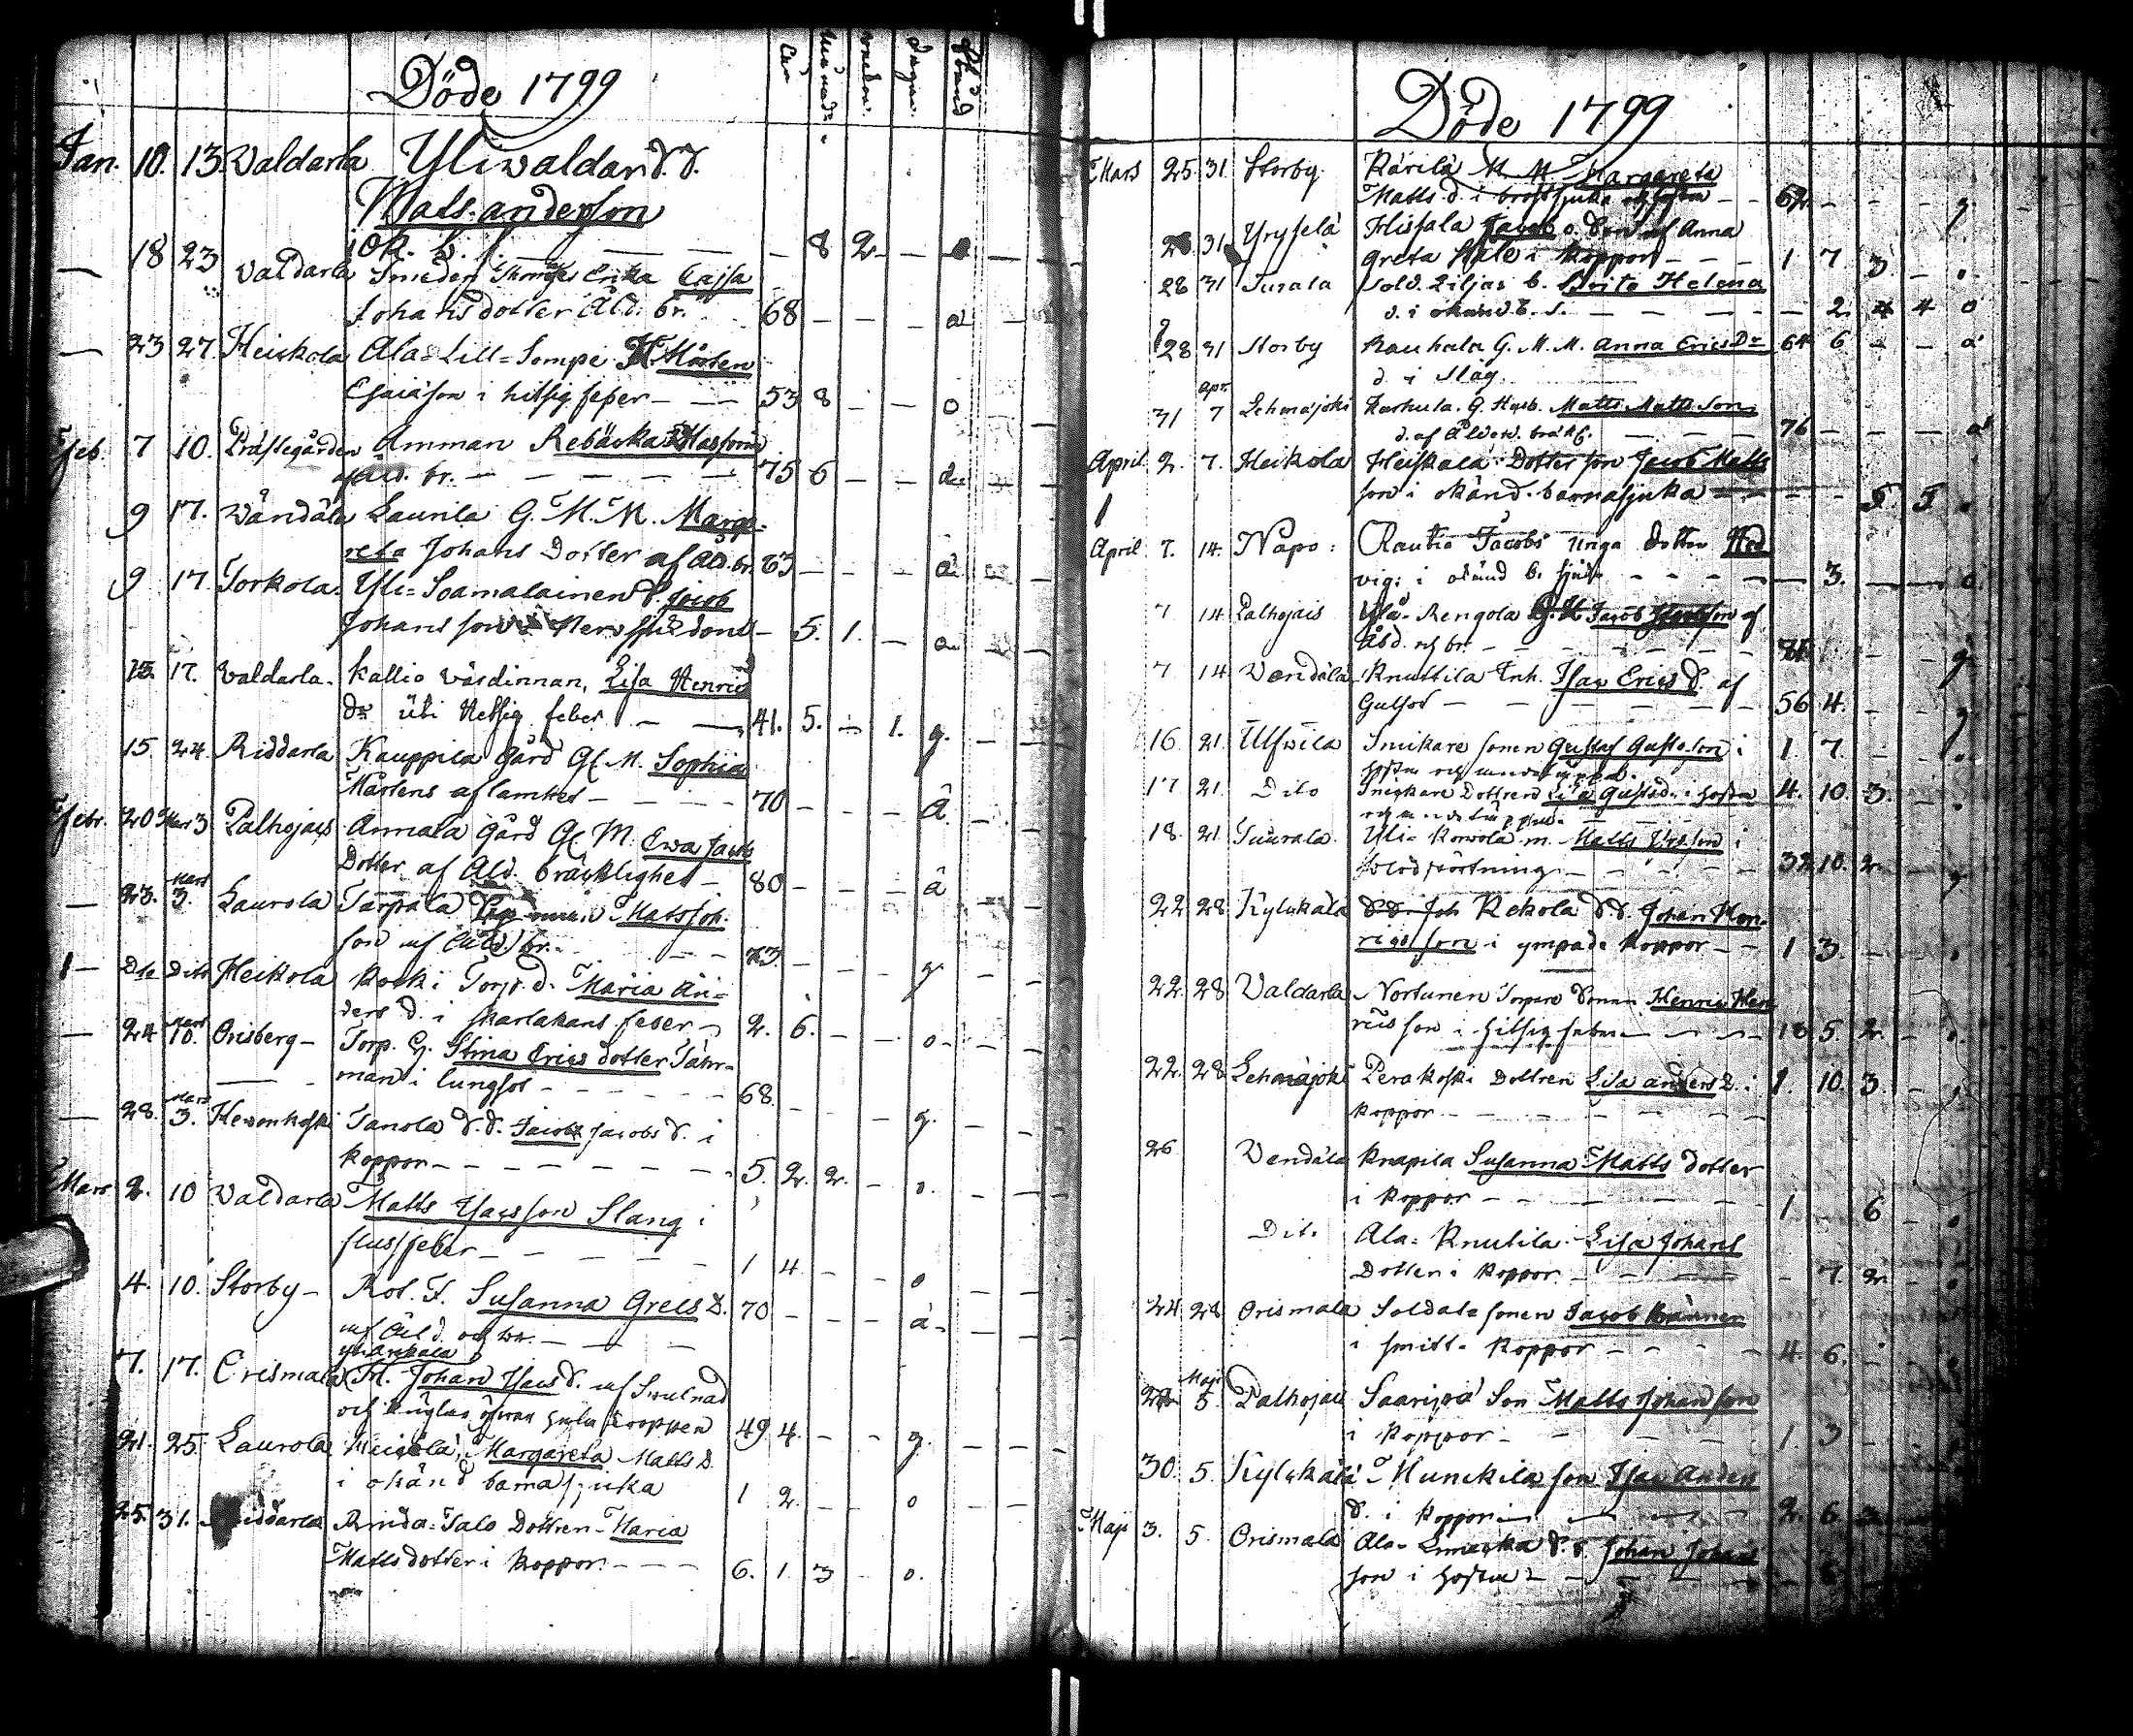 Döde 1799
Åar Månad. wekor. Dagar. Stånd
Jan. 10. 13. Waldarla Yliwaldari d.d.
Mats. anderson
i ok. b. s. — — — 8 2 —
— 18 23 Valdarla Smeden Erika Cajsa
Johans dotter Åld. br. 68 — — — a
— 23 27 Heikola Ala Lill-Sompi Mårten
Esaiason i hitsig feber — — 53 8 — — o
Feb. 7 10. Prästegården Amman Rebäcka
af åld. br. — — — — — 75 6 — —
9 17. Wändälä Laurila G. M. M. Marga-
reta Johans Dotter af åld. br. 63 — — — a
9 17 Torkola Yli-Soamalainen d. Jacob
Johans son — 5. 1. —
15. 17. Valdarla. Kallio värdinnan, Lisa Henric
dr uti Hetsig feber — — 41. 5. — 1. g.
15. 24. Riddarla Kauppila Gård Gl. M. Sophia
Mårtens af lamhet — — — — 70 — — — å
Febr. 20 Mar 3 Palhojais Annala gård Gl. M. Ewa Jacobs
Dotter af Åld. bräcklighet — 80 — — — å
— 23. Mart 3. Laurola Tarpala Mats Joh.
son af Åld. br. — — 73. — — — g
1 — Dte Dito Heikola Koski Torp. d. Maria An-
ders d. i skarlakans feber — 2. 6. — — o —
— 24 Mart 10. Orisberg — Torp. G. Stina Erics dotter Jähr-
man i lungsot — — — — — 68. — — — g.
— 28. Mars 3. Hevonkoski Janola d. d. Jacob Jacobs d. i
koppor — — — — — — — 5. 2. 2. — o.
Mars 2. 10 Valdarla Matts Isacsson Slang i
flussfeber — — — — — 1 4 — — o
4. 10. Storby — Rot. F. Susanna Grels D. 70 — — — å —
af Åld. och br. — — —
7. 17. Orismala Johan Isacs d. af Swulnad
och öfwer hela kroppen 49 4. — — g.
21. 25. Laurola Margareta Matts D.
i okänd barnasjuka 1 2. — — o
25. 31. Riddarla Rinda-Talo Dottren Maria
Matts dotter i koppor. — — — 6. 1. 3 — o.
Döde 1799
Mars 25. 31. Storby. Kärilä M. M. Margareta
Matts d. i bröstsjuka — — 62 — — — g.
28 31 Hissala Jacob o. Son af Anna
Greta Hale i koppor — — — 1 7. 3 — o.
28 31 Turala Sold. Liljas b. Brita Helena
d. i okänd b. s. — — — — 2. 4 4 o
28 31 Storby Rauhala G. M. M. Anna Erics Dr 64 6 — — a
d. i slag.
31 apr. 7 Lehmäjoki Karhula. G. Husb. Matts Matts son
d. af Ålderd. bräkl. — — — 76 — — — a
April 2. 7. Heikola Heikala Dotter son Jacob Matts
son i okänd. barnasjuka — — — 5 5 .
April 7. 14. Napo: Rautio Jacobs unga dotter Hed
vig: i okänd b. sjuk — — — — 3. — — o.
7 14 Palhojais Ylä-Rengola G. H. Jacob Jacobson af
Åld och br. — — — — — — — g
7 14 Wändälä Knuttila Inh. Isac Erics d. af
Gulsot — — — — — — 56 4. — — g
16. 21. Ulfwila Snikare sonen Gustaf Gustafson i 1 7. — — o.
hosta och
17 21. Dito Snickare Dottren Lisa Gustafd. i hosta 4. 10. 3. — .
och
18. 21. Tuurala. Yli-Korwola m. Matts i
blodstörtning — — — — 32 10. 2. — g
22 28 Kylykälä d. d. Joh Rekola d. d. Johan Hen-
rics son i ympade koppor — — 1 3. — — .
22. 28 Valdarla Nortunen Torpare Sonen Henric Hen
rics son i hitsig feber — — — 18 5. 2. — .
22. 28 Lehmäjoki Perakoski Dottren Lisa anders D. i 1. 10. 3. — ,
koppor — — — — — — —
26. Vändälä Knapila Susanna Matts dotter
i koppor — — — — — 1 6 — .
Dit. Ala-Knutila Lisa Johans
Dotter i koppor — — — — 7. 2. — .
24 28 Orismala Soldate sonen Jacob Bränner
i smitt-koppor — — — — 4. 6. —
Maji 5. Palhojais Saaripä Son Matts Johanson
i koppor — — — — 1. 3 —
30. 5. Kylykälä Hunckila son Isac Anders
S. i koppor — — — 2. 6. 3
Maji 3. 5. Orismala Ala- d. s. Johan Johans
son i hosta — — — — —